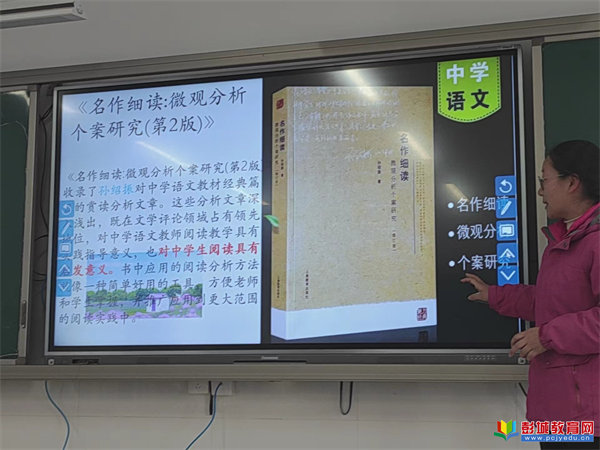 《名作细读:微观分析
个案研究(第2版)》
《名作细读:微观分析个案研究(第2版
收录了孙绍振对中学语文教材经典篇
的赏读分析文章。这些分析文章深
浅出，既在文学评论领域占有领先
位，对中学语文教师阅读教学具有
践指导意义，也对中学生阅读具有
发意义。书中应用的阅读分析方法
像一种简单好用的工具，方便老师
和学生学把，并推广应用到更大范围
的阅读实践中。
名作细读
微观分析个案研究
名作细读
微观分析个案研究
中学
语文
名作细读
微观分
个案研究
彭城教育网
www.pcjyedu.cn